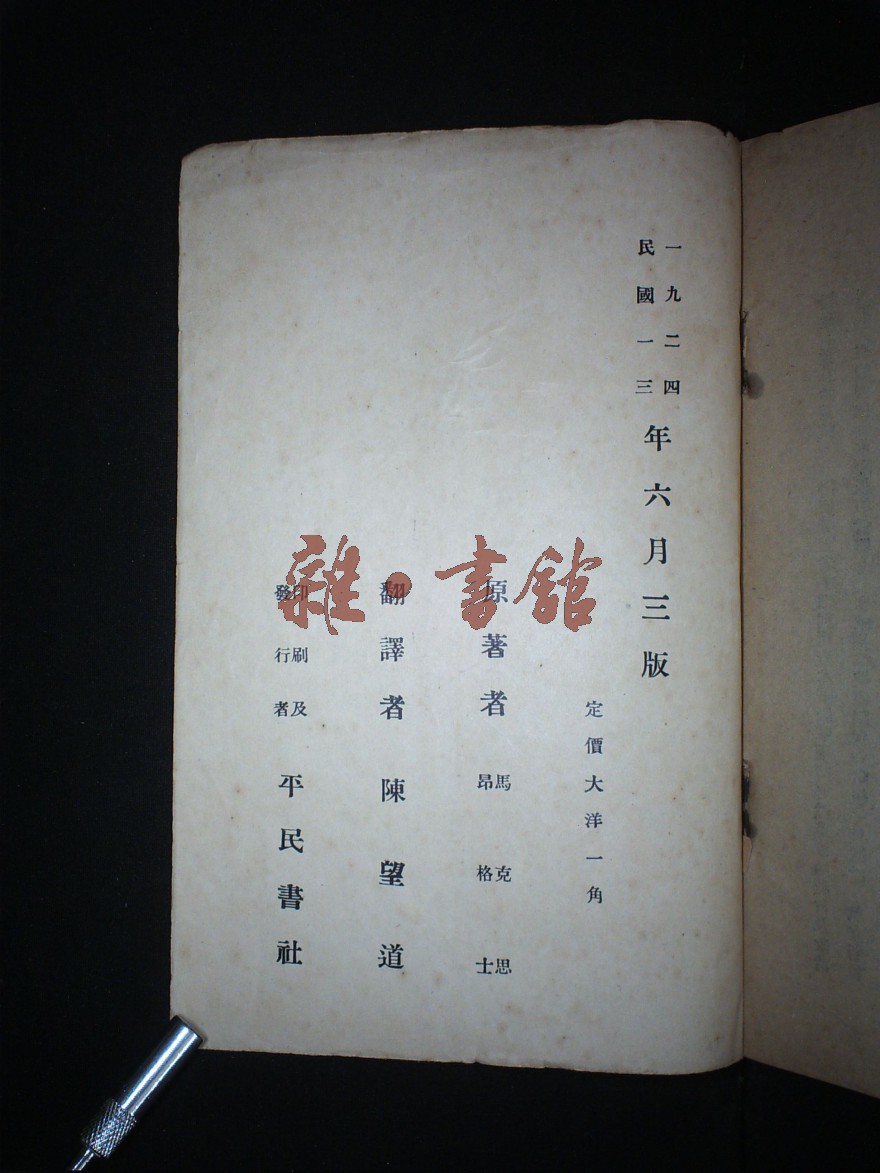 一九二四
民國一三
年六月三版
定價大洋一角
原著者
馬克思
昂格士
翻譯者 陳望道
印刷及
發行者
平民書社
雜·書館